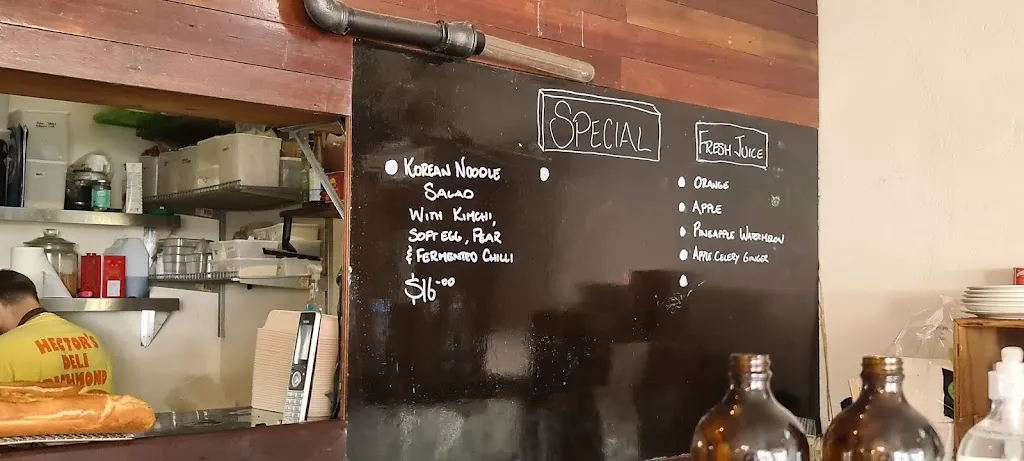 SPECIAL
FRESH JUICE
KOREAN NOODLE
SALAD
WITH KIMCHI,
SOFT EGG, PEAR
& FERMENTED CHILLI
$16.00
ORANGE
APPLE
PINEAPPLE WATERMELON
APPLE CELERY GINGER
HECTOR'S
DELI
RICHMOND